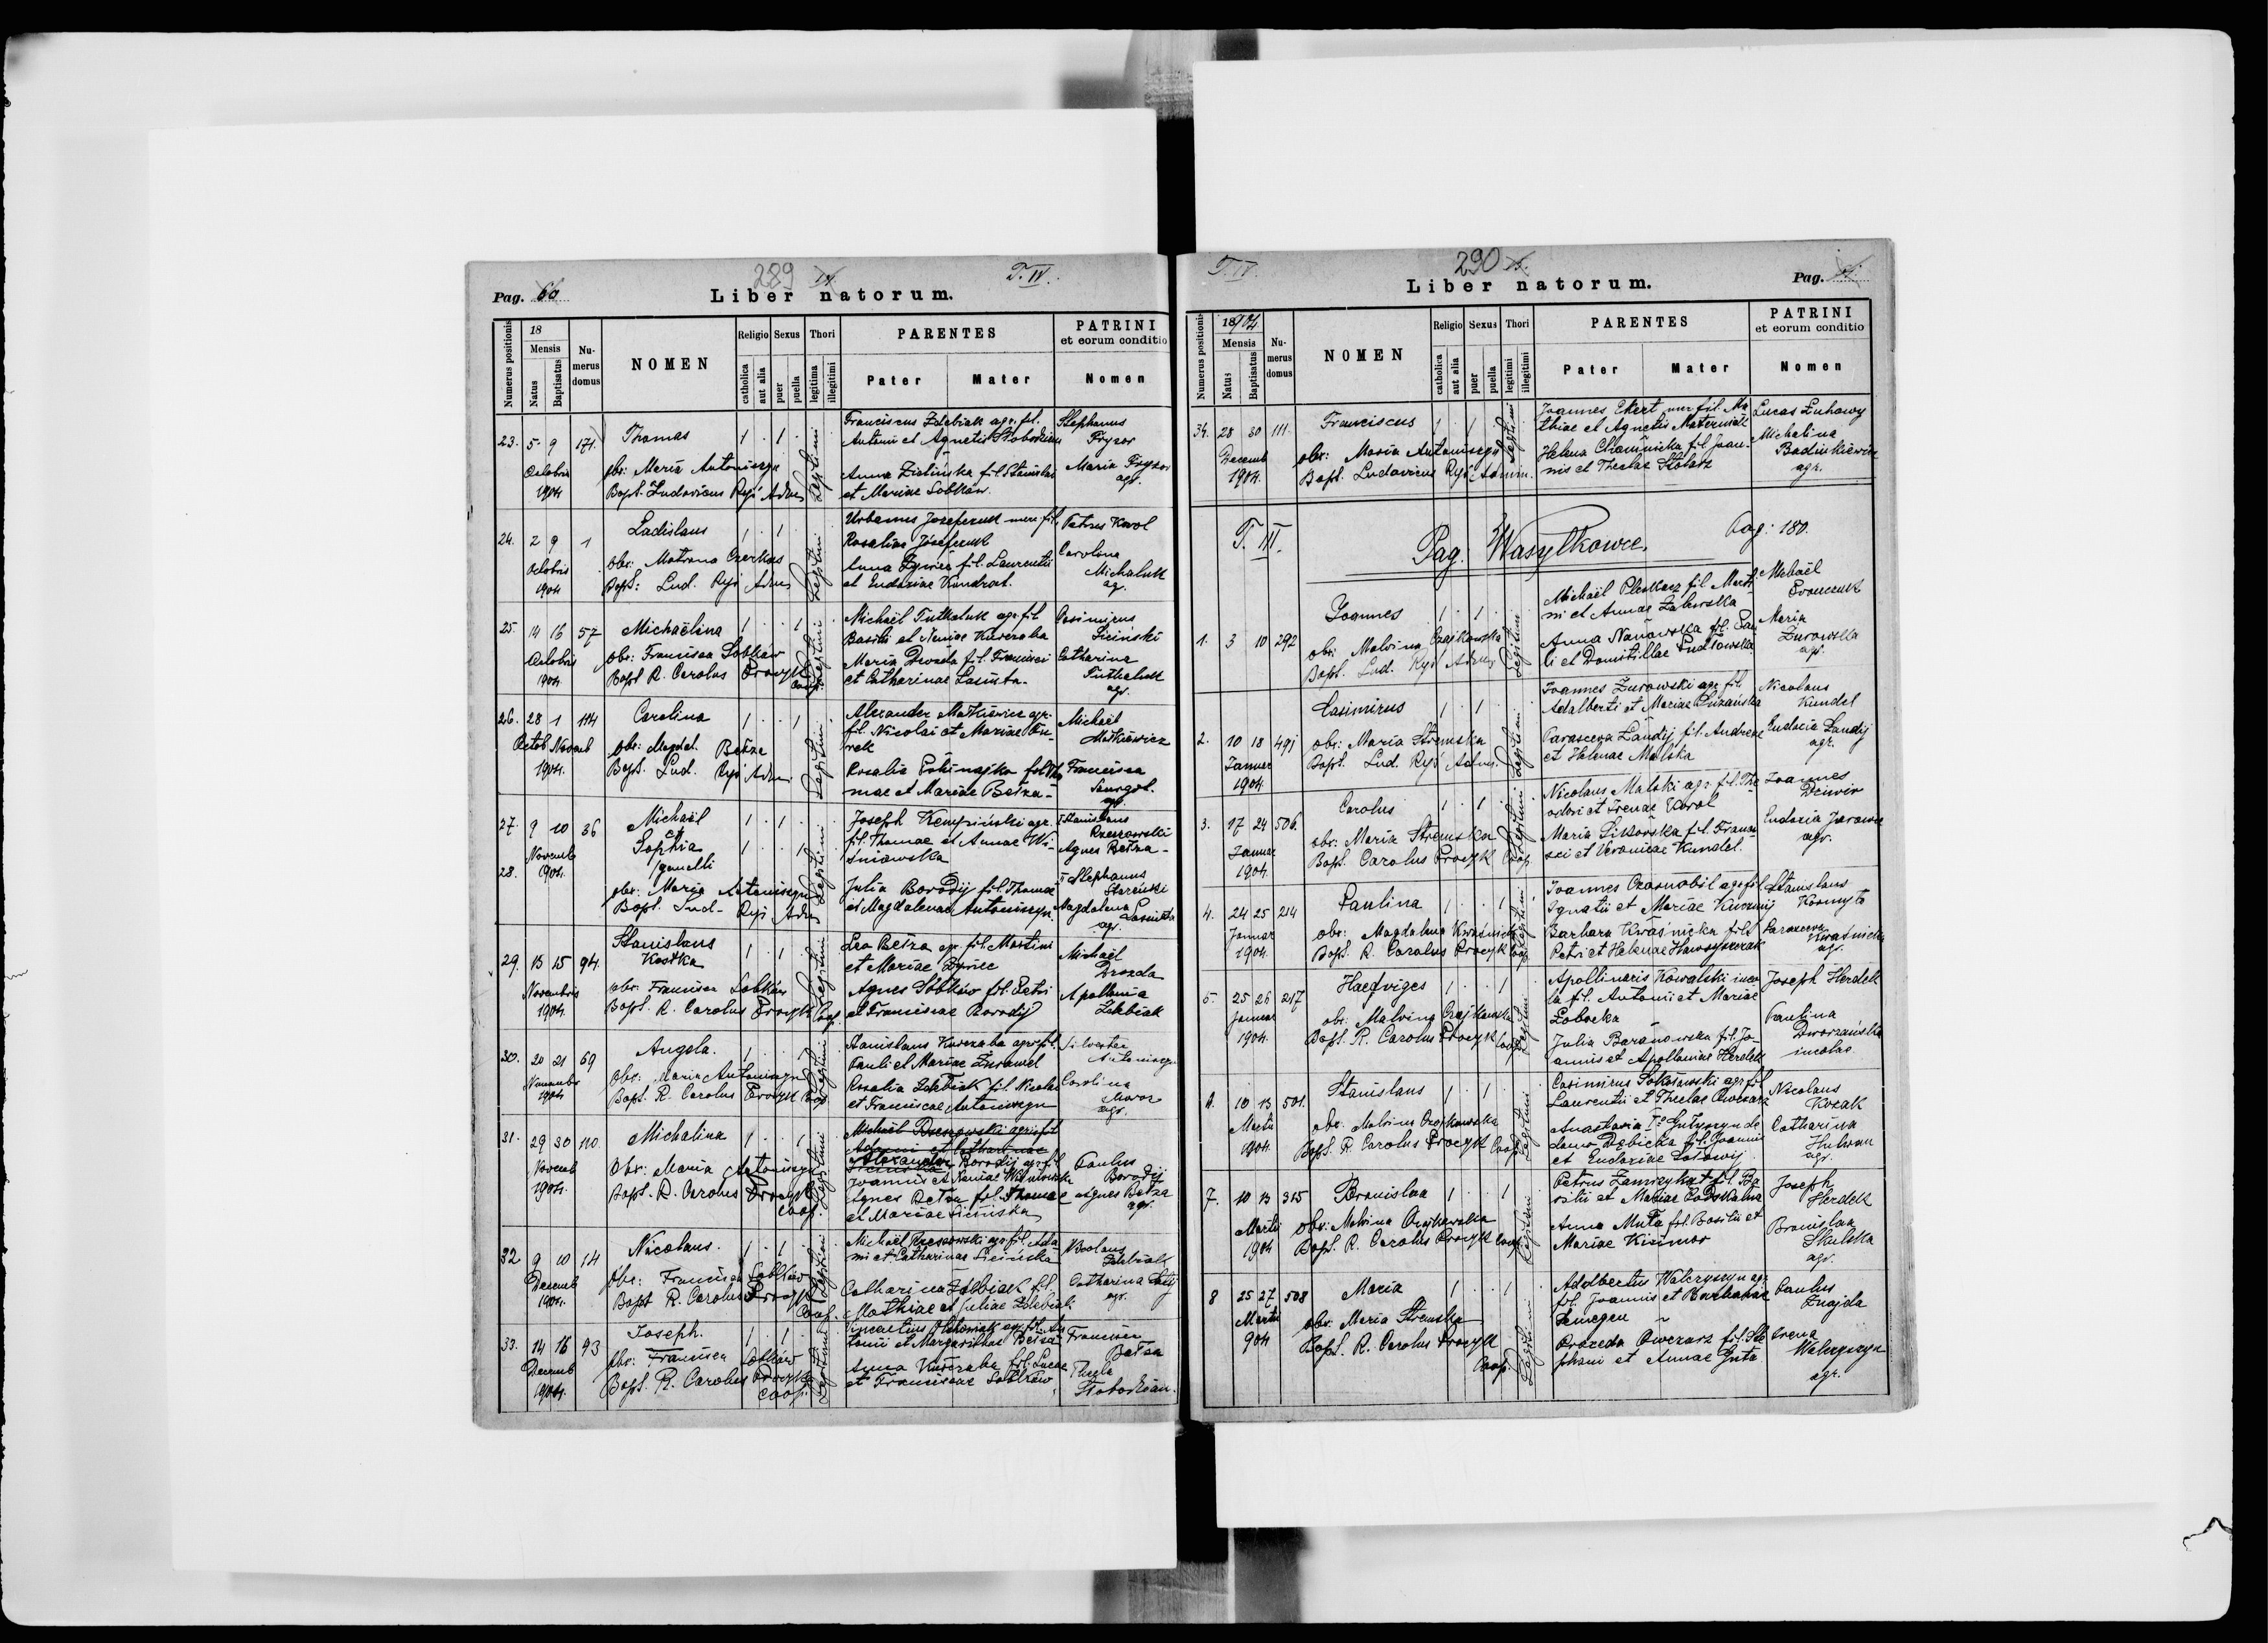 289
T. IV.
Pag. 66
Liber natorum.
Numerus positionis
18
Mensis
Natus
Baptisatus
Numerus domus
NOMEN
Religio
catholica
aut alia
Sexus
puer
puella
Thori
legitima
illegitimi
PARENTES
Pater
Mater
PATRINI
et eorum conditio
Nomen
23. 5 9 171. Thomas 1 1 Legitimi
Octobris 1904
obs: Maria Antoniszyn
Bapt. Ludovicus Ryś Adm.
Franciscus Zdebiak agr. fil.
Antoni et Agnetis Słobodzian
Anna Zielińska fil. Stanislai
et Mariae Sobków.
Stephanus
Fryzor
Maria Fryzor
agr.
24. 2 9 1 Ladislaus 1 1 Legitimi
Octobris 1904
obs: Matrona Czerkas
Bapt: Lud. Ryś Adm.
Urbanus Josefczuk mer. fil.
Rosaliae Josefczuk
Anna Żywiec fil. Laurentii
et Eudoxiae Kundrat.
Petrus Karol
Carolina
Michaluk
ag.
25. 14 16 57 Michaëlina 1 1 Legitimi
Octobris 1904
obs: Francisca Sobków
Bapt R. Carolus Procyk Coop.
Michaël Tutkaluk agr. fil
Basilii et Xeniae Kurczaba
Maria Drozda fil. Francisci
et Catharinae Lasiuta.
Casimirus
Siciński
Catharina
Tutkaluk
agr.
26. 28 1 114 Carolina 1 1 Legitimi
Octob Novemb 1904.
obs: Magdal. Bełza
Bapt. Lud. Ryś Adm.
Alexander Matkiewicz agr.
fil. Nicolai et Mariae
Rosalia
mae et Mariae Bełza
Michaël
Matkiewicz
Francisca
agr.
27. 9 10 36 Michaël 1 1 Legitimi
et
28. Sophia 1 1
gemelli
Novemb 1904.
obs: Maria Antoniszyn
Bapt. Lud. Ryś Adm
Joseph Kempiński agr.
fil. Thomae et Annae Wiśniowska
Julia Borodij fil. Thomae
et Magdalenae Antoniszyn.
I Stanislaus
Rzeszowski
Agnes Bełza
II Stephanus
Starzuski
Magdalena Lasiuta
agr.
29. 13 15 94. Stanislaus 1 1 Legitimi
Kostka
Novembris 1904.
obs. Francisca Sobków
Bapt. R. Carolus Procyk Coop.
Leo Bełza agr. fil. Martini
et Mariae Żywiec
Agnes Sobków fil. Petri
et Franciscae Borodij
Michaël
Drozda
Apollonia
Zdebiak
30. 20 21 69 Angela. 1 1 Legitimi
Novembr 1904
obs: Maria Antoniszyn
Bapt. R. Carolus Procyk Coop
Stanislaus Kurczaba agr. fil.
Pauli et Mariae Żurawel
Rosalia Zdebiak fil. Nicolai
et Franciscae Antoniszyn
Silvester
Antoniszyn
Carolina
Moroz
agr.
31. 29 30 110 Michalina 1 1 Legitimi
Novemb 1904.
Obs: Maria Antoniszyn
Bapt. R. Carolus Procyk Coop.
Michaël Rzeszowski agr. fil
Adami et Catharinae
Alexander Borodij agr. fil
Joannis et Xeniae
Agnes Bełza fil. Thomae
et Mariae Sicińska
Paulus
Borodij
Agnes Bełza
agr.
32 9 10 14 Nicolaus. 1 1 Legitimi
Decemb 1904.
Obs: Francisca Sobków
Bapt R. Carolus Procyk Coop.
Michaël Rzeszowski agr. fil. Adami
et Catharinae Sicińska
Catharina Zdebiak fil.
Mathiae et Juliae Zdebiak
Nicolaus
Zdebiak
Catharina
agr.
33. 14 16 93 Joseph. 1 1 Legitimi
Decemb 1904.
Obs: Francisca Sobków
Bapt. R. Carolus Procyk Coop.
Vincentius agr. fil. Antonii
et Margarithae Bełza
Anna Kurczaba fil. Lucae
et Franciscae Sobków
Francisca
Bełza
Thecla
Słobodzian.
T. IV.
290
Liber natorum.
Pag.
Numerus positionis
1904
Mensis
Natus
Baptisatus
Numerus domus
NOMEN
Religio
catholica
aut alia
Sexus
puer
puella
Thori
legitimi
illegitimi
PARENTES
Pater
Mater
PATRINI
et eorum conditio
Nomen
34. 28 30 111 Franciscus 1 1 Legitimi
Decemb 1904.
obs: Maria Antoniszyn
Bapt. Ludovicus Ryś Admin.
Joannes Ekert mer. fil. Mathiae
et Agnetis
Helena fil. Joannis
et Theclae Stolarz
Lucas Łuhowy
Michalina
Badinkiewicz
agr.
T. III.
Pag. Wasylkowce.
Pag: 180.
1. 3 10 292 Joannes 1 1 Legitimi
obs: Malvina Czajkowska
Bapt. Lud. Ryś Adm.
Michaël Pleskacz fil. Martini
et Annae Zalewska
Anna Nanowska fil. Pauli
et Domitillae
Michaël
Maria
Żurowska
agr.
2. 10 18 491 Casimirus 1 1 Legitimi
Januar 1904.
obs: Maria Stremska
Bapt. Lud. Ryś Adm.
Joannes Żurowski agr. fil.
Adalberti et Mariae
Parasceva Łandij fil. Andreae
et Helenae Malska
Nicolaus
Kundel
Eudocia Landij
agr.
3. 17 24 506. Carolus 1 1 Legitimi
Januar 1904.
obs: Maria Stremska
Bapt. Carolus Procyk Coop
Nicolaus Malski agr. fil. Theodori
et Irenae Karol
Maria Sikorska fil. Francisci
et Veronicae Kundel.
Joannes
Eudoxia
agr.
4. 24 25 214 Paulina 1 1 Legitimi
Januar 1904.
obs: Magdalena Kwaśnicka
Bapt. R. Carolus Procyk Coop
Joannes Czarnobil agr. fil.
Ignatii et Mariae
Barbara Kwaśnicka fil.
Petri et Helenae Hawryszczak
Stanislaus
Parasceva
Kwaśnicka
agr.
5. 25 26 217 Haedviges 1 1 Legitimi
Januar 1904.
obs: Malvina Czajkowska
Bapt. R. Carolus Procyk Coop
Apollinaris Kowalski incola
fil. Antonii et Mariae
Łobocka
Julia Baranowska fil. Joannis
et Apolloniae Herdek
Joseph Herdek
Paulina
Dworzańska
incolae
10 13 501. Stanislaus 1 1 Legitimi
Martii 1904.
obs. Malvina Czajkowska
Bapt. R. Carolus Procyk Coop
Casimirus Sokołowski agr. fil
Laurentii et Theclae Owczarz
Anastasia
domo Dębicka fil. Joannis
et Eudoxiae
Nicolaus
Kozak
Catharina
agr.
7. 10 13 315 Bronislaa 1 1 Legitimi
Martii 1904
obs: Malvina Czajkowska
Bapt. R. Carolus Procyk Coop
Petrus fil. Basilii
et Mariae Podskalna
Anna Muta fil. Basilii et
Mariae
Joseph
Herdek
Bronislaa
Skulska
agr.
8 25 27 508 Maria 1 1 Legitimi
Martii 904
obs: Maria Stremska
Bapt. R. Carolus Procyk Coop.
Adalbertus Waleryszyn agr.
fil. Joannis et Barbarae
Semegen
Praxeda Owczarz fil. Stephani
et Annae Guta
Paulus
Znajda
Irena
Waleryszyn
agr.